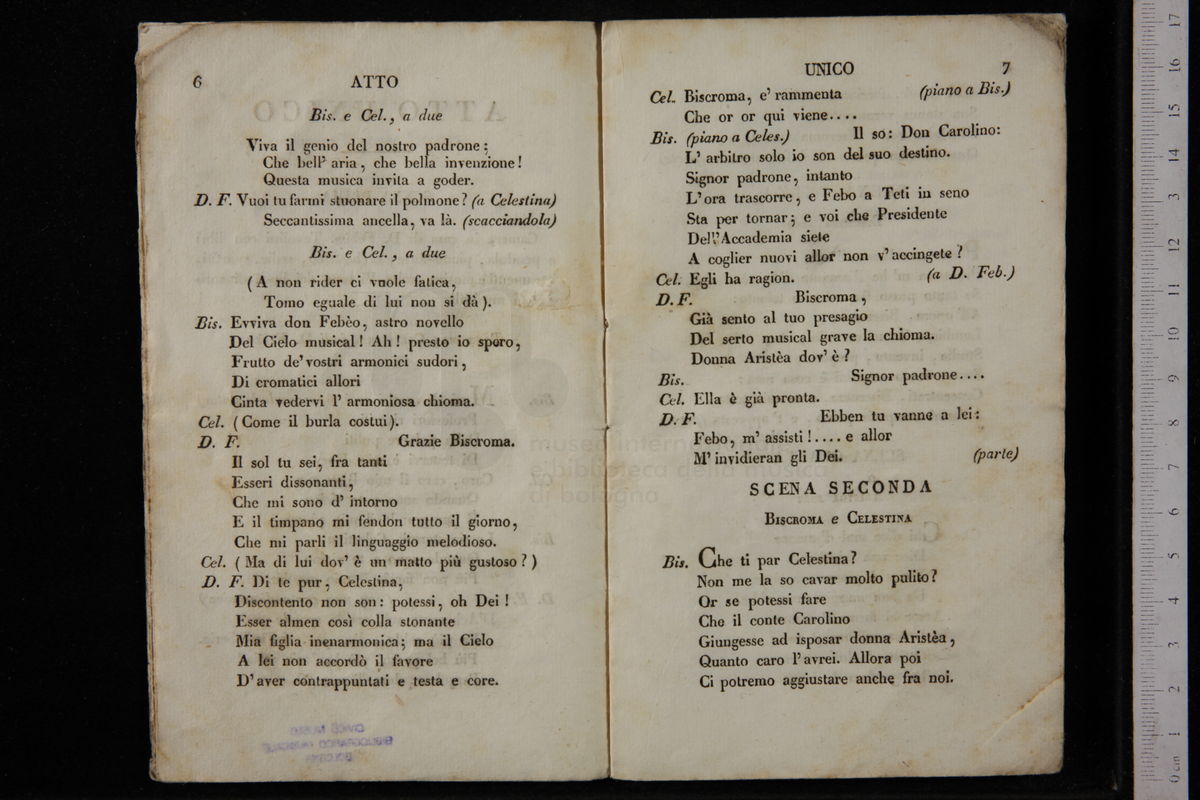 6 ATTO
Bis. e Cel., a due
Viva il genio del nostro padrone:
Che bell' aria, che bella invenzione!
Questa musica invita a goder.
D. F. Vuoi tu farmi stuonare il polmone? (a Celestina)
Seccantissima ancella, va là. (scacciandola)
Bis. e Cel., a due
(A non rider ci vuole fatica,
Tomo eguale di lui non si dà).
Bis. Evviva don Febèo, astro novello
Del Cielo musical! Ah! presto io spero,
Frutto de' vostri armonici sudori,
Di cromatici allori
Cinta vedervi l' armoniosa chioma.
Cel. (Come il burla costui).
D. F. Grazie Biscroma.
Il sol tu sei, fra tanti
Esseri dissonanti,
Che mi sono d' intorno
E il timpano mi fendon tutto il giorno,
Che mi parli il linguaggio melodioso.
Cel. (Ma di lui dov' è un matto più gustoso?)
D. F. Di te pur, Celestina,
Discontento non son: potessi, oh Dei!
Esser almen così colla stonante
Mia figlia inenarmonica; ma il Cielo
A lei non accordò il favore
D' aver contrappuntati e testa e core.
UNICO 7
Cel. Biscroma, e' rammenta (piano a Bis.)
Che or or qui viene....
Bis. (piano a Celes.) Il so: Don Carolino:
L' arbitro solo io son del suo destino.
Signor padrone, intanto
L' ora trascorre, e Febo a Teti in seno
Sta per tornar; e voi che Presidente
Dell' Accademia siete
A coglier nuovi allor non v' accingete?
Cel. Egli ha ragion. (a D. Feb.)
D. F. Biscroma,
Già sento al tuo presagio
Del serto musical grave la chioma.
Donna Aristèa dov' è?
Bis. Signor padrone....
Cel. Ella è già pronta.
D. F. Ebben tu vanne a lei:
Febo, m' assisti!.... e allor
M' invidieran gli Dei. (parte)
SCENA SECONDA
BISCROMA e CELESTINA
Bis. Che ti par Celestina?
Non me la so cavar molto pulito?
Or se potessi fare
Che il conte Carolino
Giungesse ad isposar donna Aristèa,
Quanto caro l' avrei. Allora poi
Ci potremo aggiustare anche fra noi.